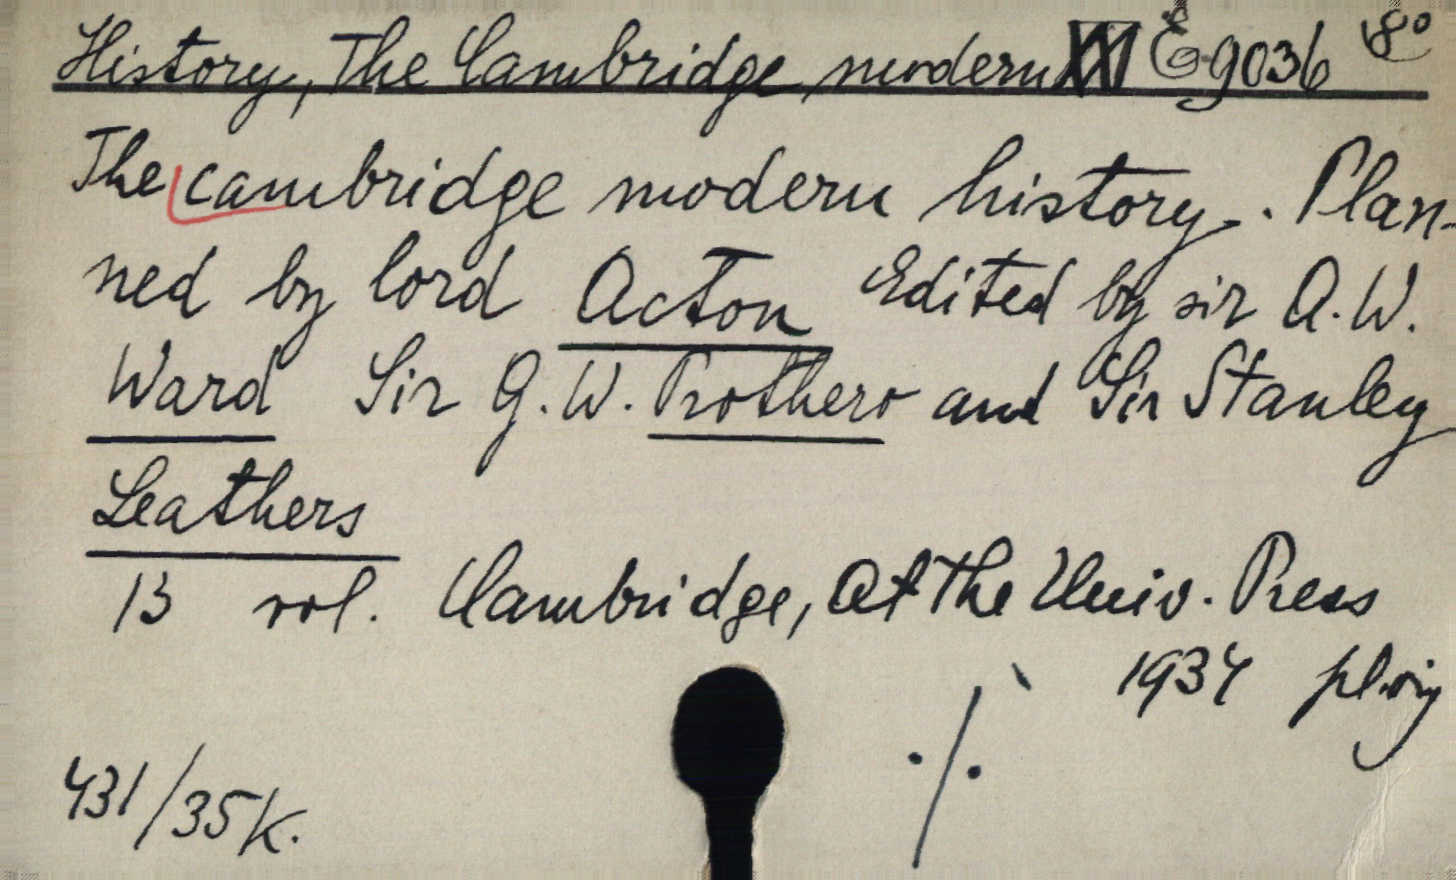 History, The Cambridge modern E 9036 8°
The cambridge modern history. Plan-
ned by lord Acton Edited by sir A. W.
Ward Sir G. W. Prothero and Sir Stanley
Leathers
13 vol. Cambridge, At the Univ. Press
1934
431/35K. ·/·